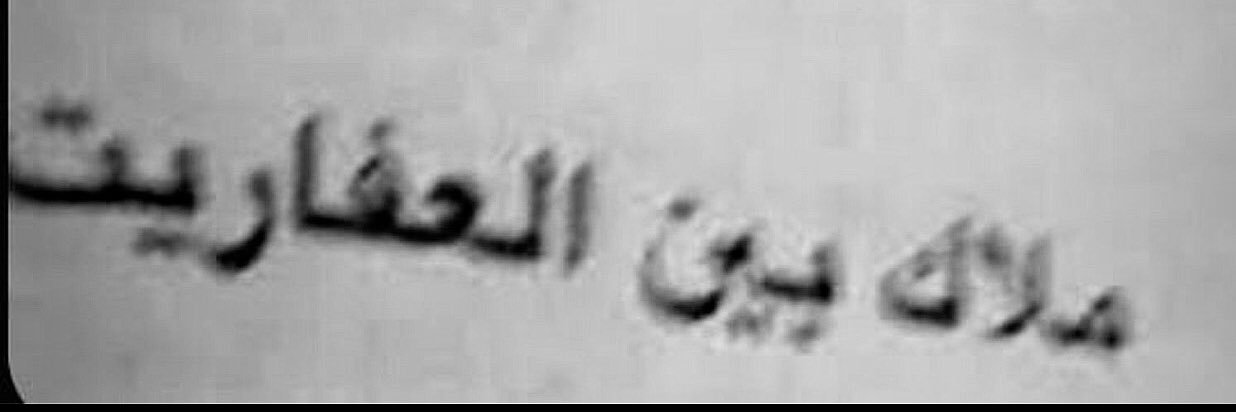 ملاك بين العفاريت